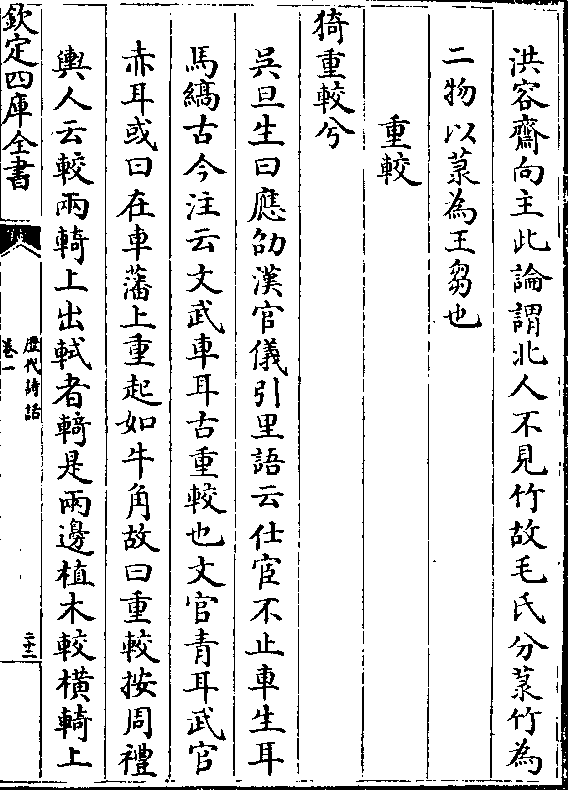 洪容齋向主此論謂北人不見竹故毛氏分菉竹為
二物以菉為王芻也
重較
猗重較兮
吳旦生曰應劭漢官儀引里語云仕宦不止車生耳
馬縞古今注云文武車耳古重較也文官青耳武官
赤耳或曰在車藩上重起如牛角故曰重較按周禮
輿人云較兩輢上出軾者輢是兩邊植木較橫輢上
欽定四庫全書
歷代詩話
卷一
二十二